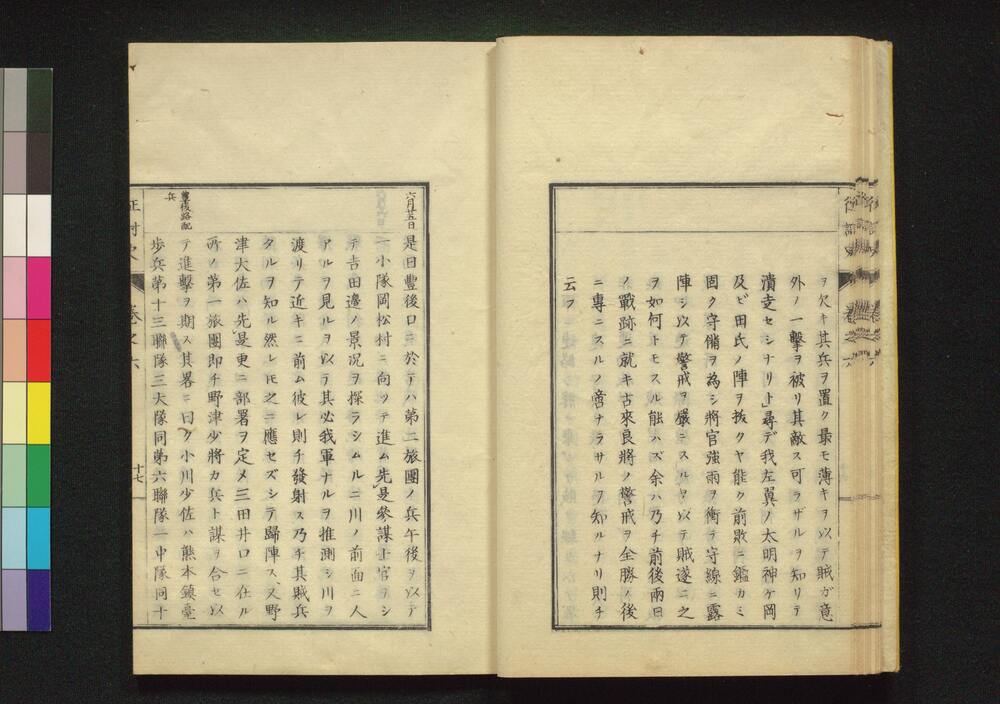 ヲ欠キ其兵ヲ置ク最モ薄キヲ以テ賊ガ意
外ノ一擊ヲ被リ其敵ス可ラザルヲ知リテ
潰走セシナリト尋デ我左翼ノ大明神ケ岡
及ビ田氏ノ陣ヲ抜クヤ能ク前敗ニ鑑カミ
固ク守備ヲ為シ將官強雨ヲ衝テ守線ニ露
陣シ以テ警戒ヲ嚴ニスルヤ以テ賊遂ニ之
ヲ如何トモスル能ハズ余ハ乃チ前後兩日
ノ戰跡ニ就キ古來良將ノ警戒ヲ全勝ノ後
ニ專ニスルノ啻ナラサルヲ知ルナリ則チ
云フ
六月廿五日
是日豊後口ニ於テハ第二旅團ノ兵午後ヲ以テ
一小隊岡松村ニ向ツテ進ム先是參謀士官ヲシ
テ吉田邊ノ景况ヲ探ラシムルニ川ノ前面ニ人
アルヲ見ルヲ以テ其必我軍ナルヲ推測シ川ヲ
渡リテ近キニ前ム彼レ則チ發射ス乃チ其賊兵
タルヲ知ル然レ𪜈之ニ應セズシテ歸陣ス又野
津大佐ハ先是更ニ部署ヲ定メ三田井口ニ在ル
所ノ第一旅團即チ野津少將カ兵ト謀ヲ合セ以
豊後路配
兵
テ進擊ヲ期ス其畧ニ曰ク小川少佐ハ熊本鎮臺
歩兵第十三聯隊三大隊同第六聯隊一中隊同十
征討史
卷之六
十七